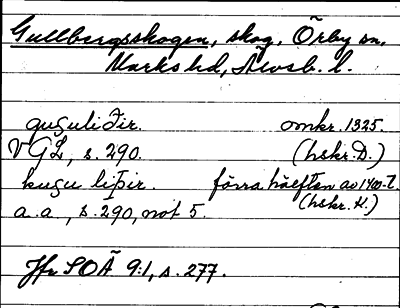 Gullbergsskogen, skog, Örby sn,
Marks hd, Älvsb. l.
guguliðir. omkr. 1325.
VGL, s. 290. (hskr. D.)
hugu liþir. förra hälften av 1400-t.
a.a., s. 290, not 5. (hskr. K.)
Jfr SOÄ 9:1, s. 277.